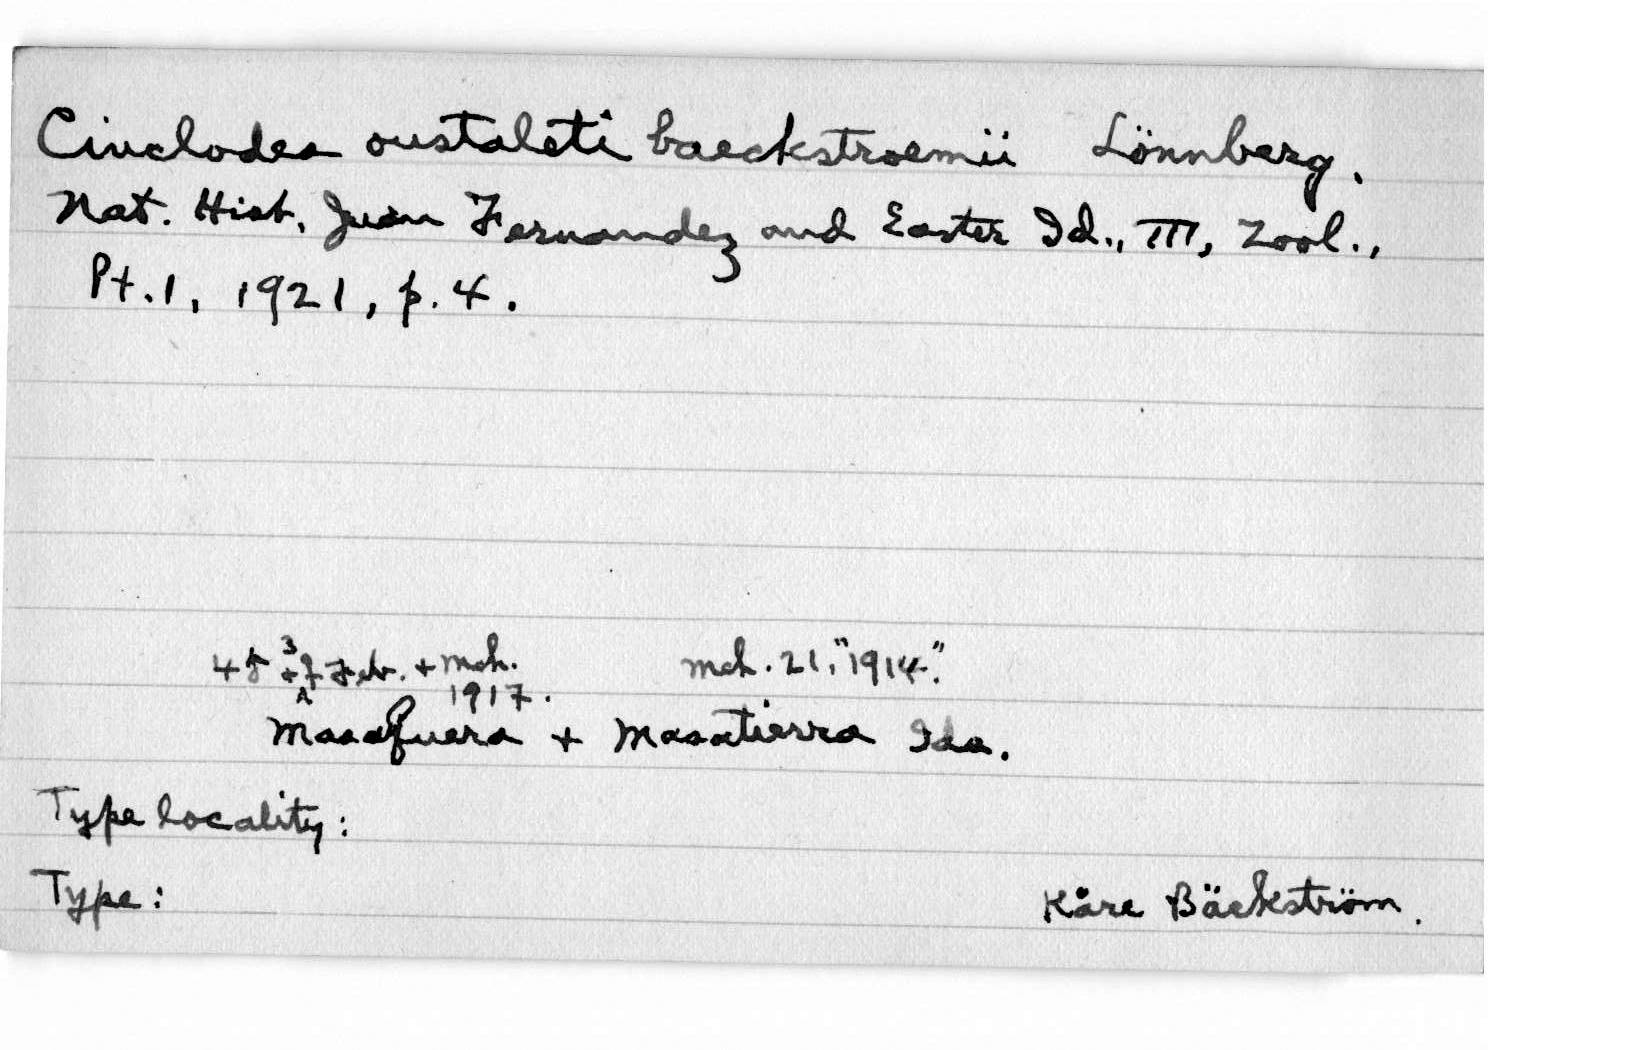 Cinclodes oustaleti baeckstroemii Lönnberg.
Nat. Hist. Juan Fernandez and Easter Id., III, Zool.,
Pt. 1, 1921, p. 4.
4 ♂ + 3 ♀ Feb. + Mch. 1917. Mch. 21, "1914".
Masafuera + Masatierra Ids.
Type locality:
Type: Kåre Bäckström.